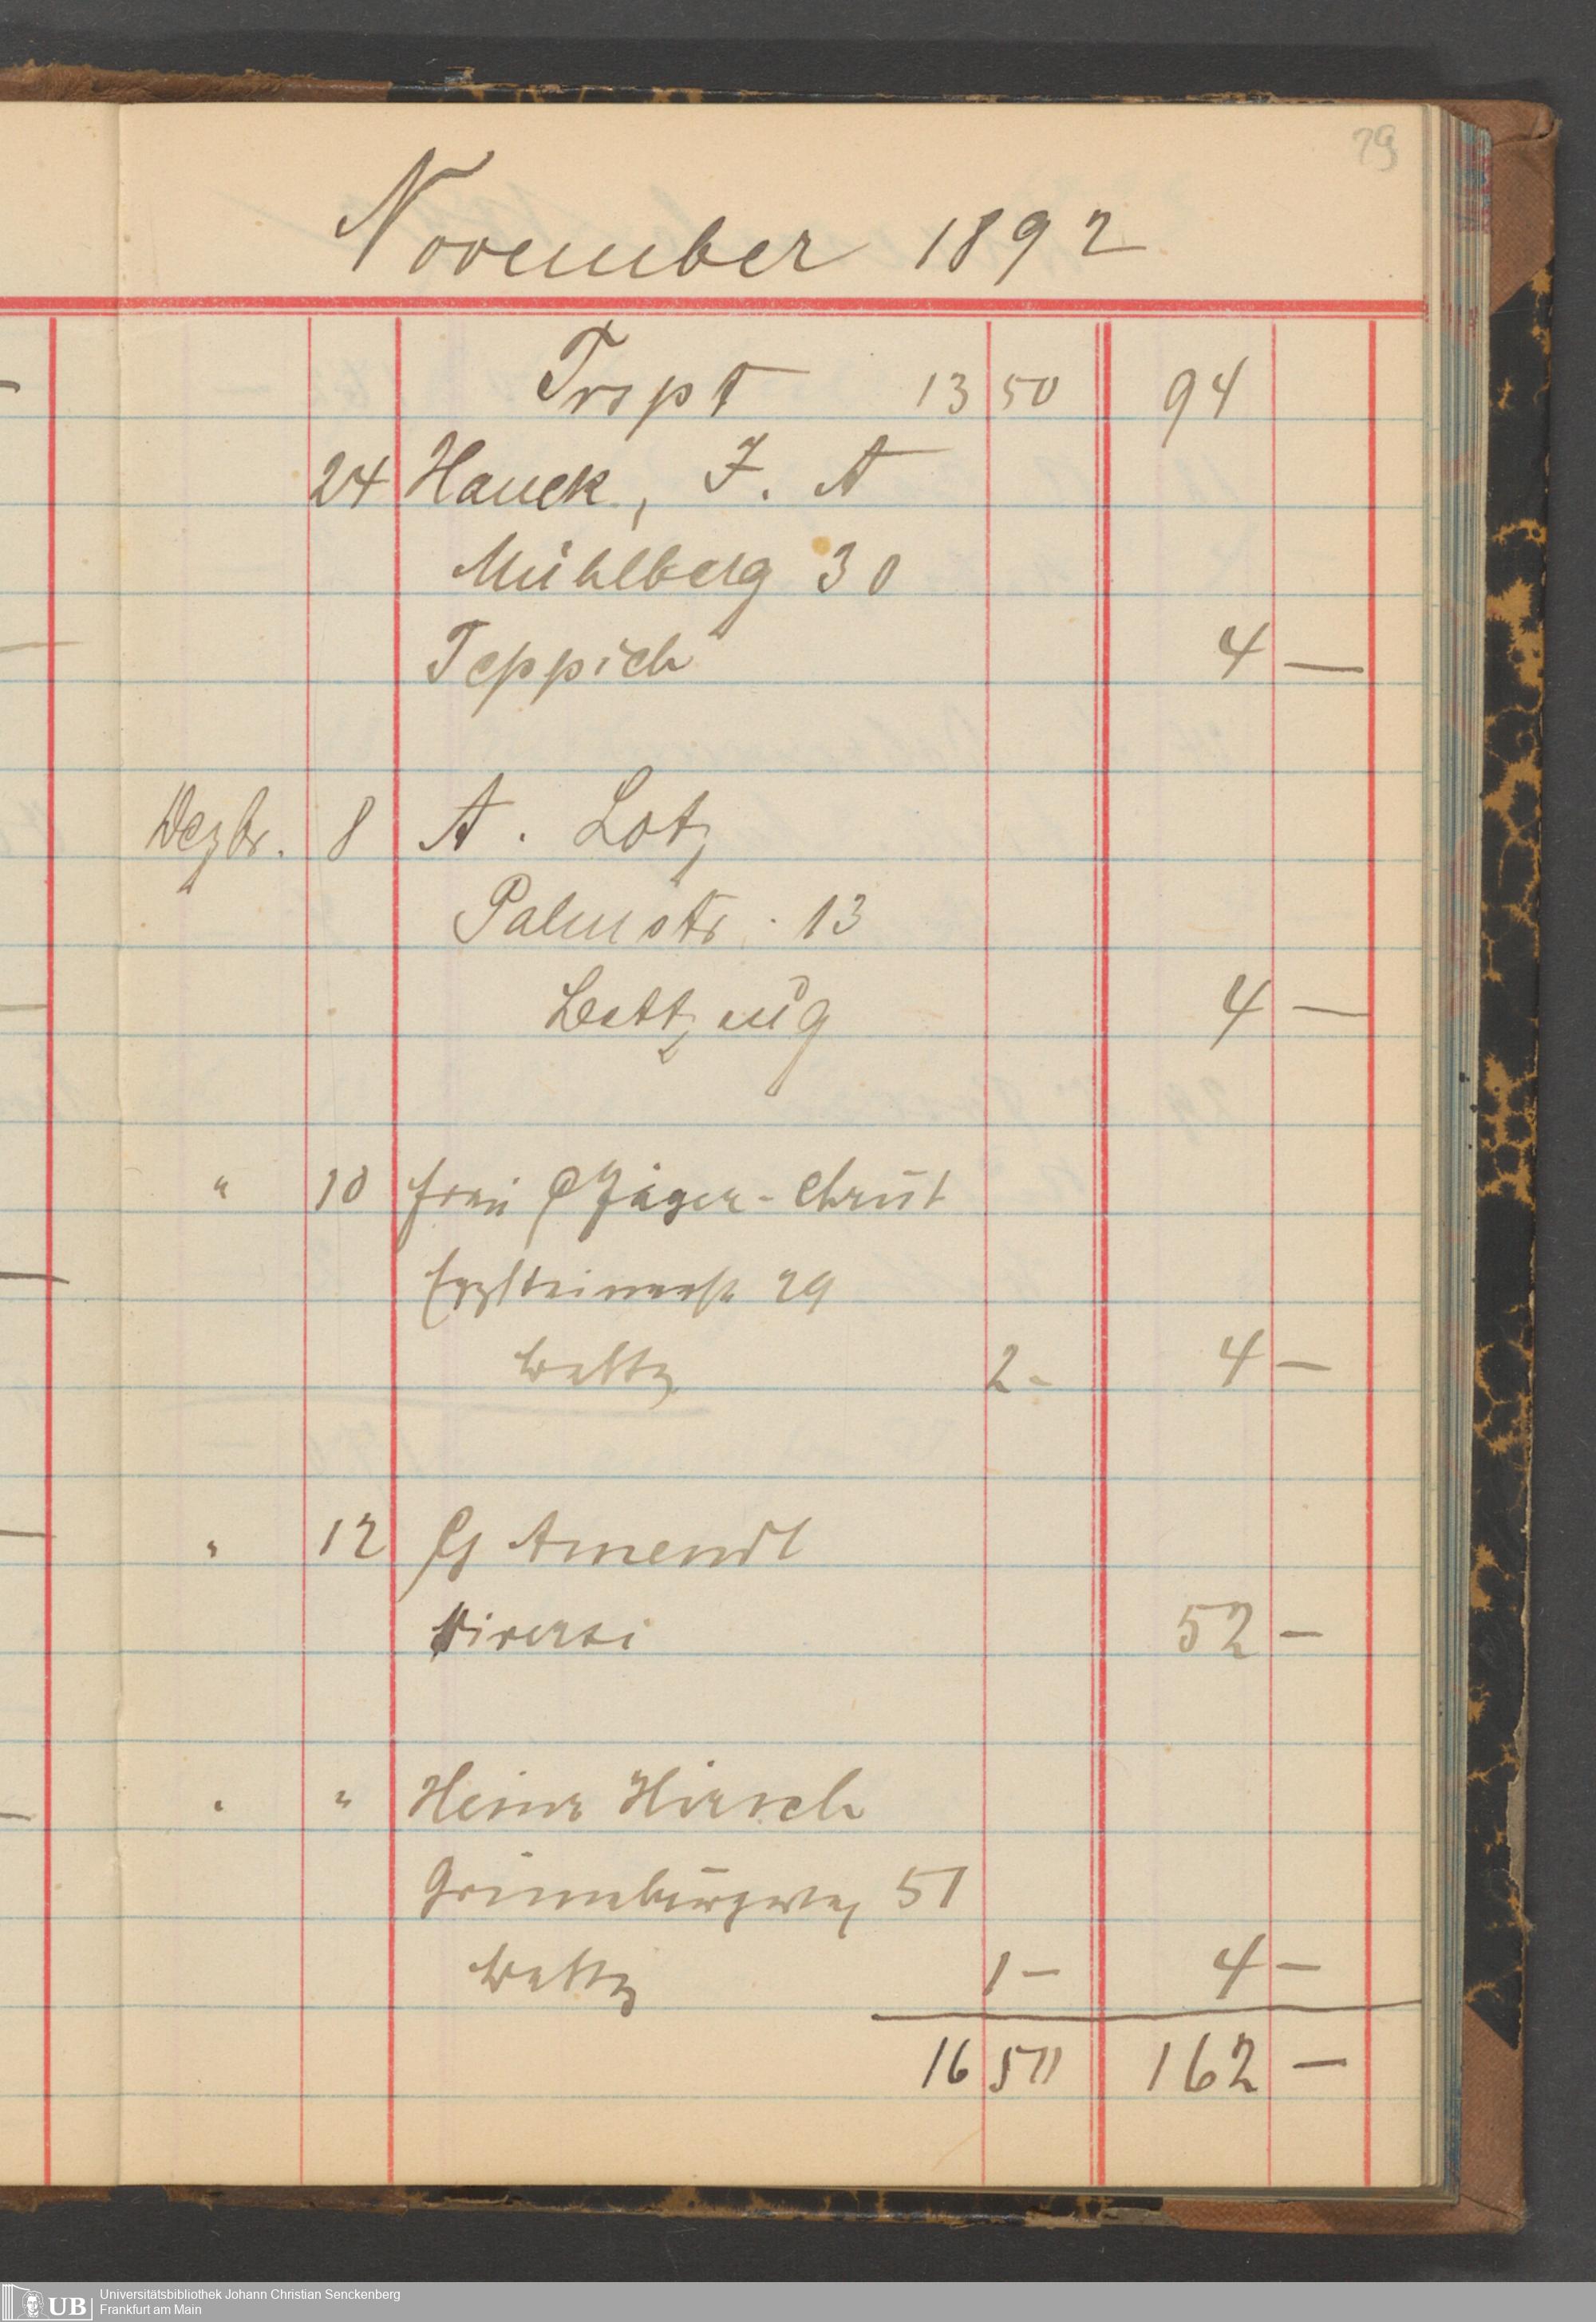 79
November 1892
Trspt 13 50 94
24 Hauck, F. A
Mühlberg 30
Teppich 4 —
Dezbr. 8 A. Lotz
Palmstr. 13
Bettzeug 4 —
" 10 Frau Jäger-Christ
29
Bettz 2 - 4 —
" 12 G Amendt
Diverse 52 —
" " Heinr Hirsch
Grüneburgweg 51
Bettz 1 — 4 —
16 50 162 —
Universitätsbibliothek Johann Christian Senckenberg
UB Frankfurt am Main